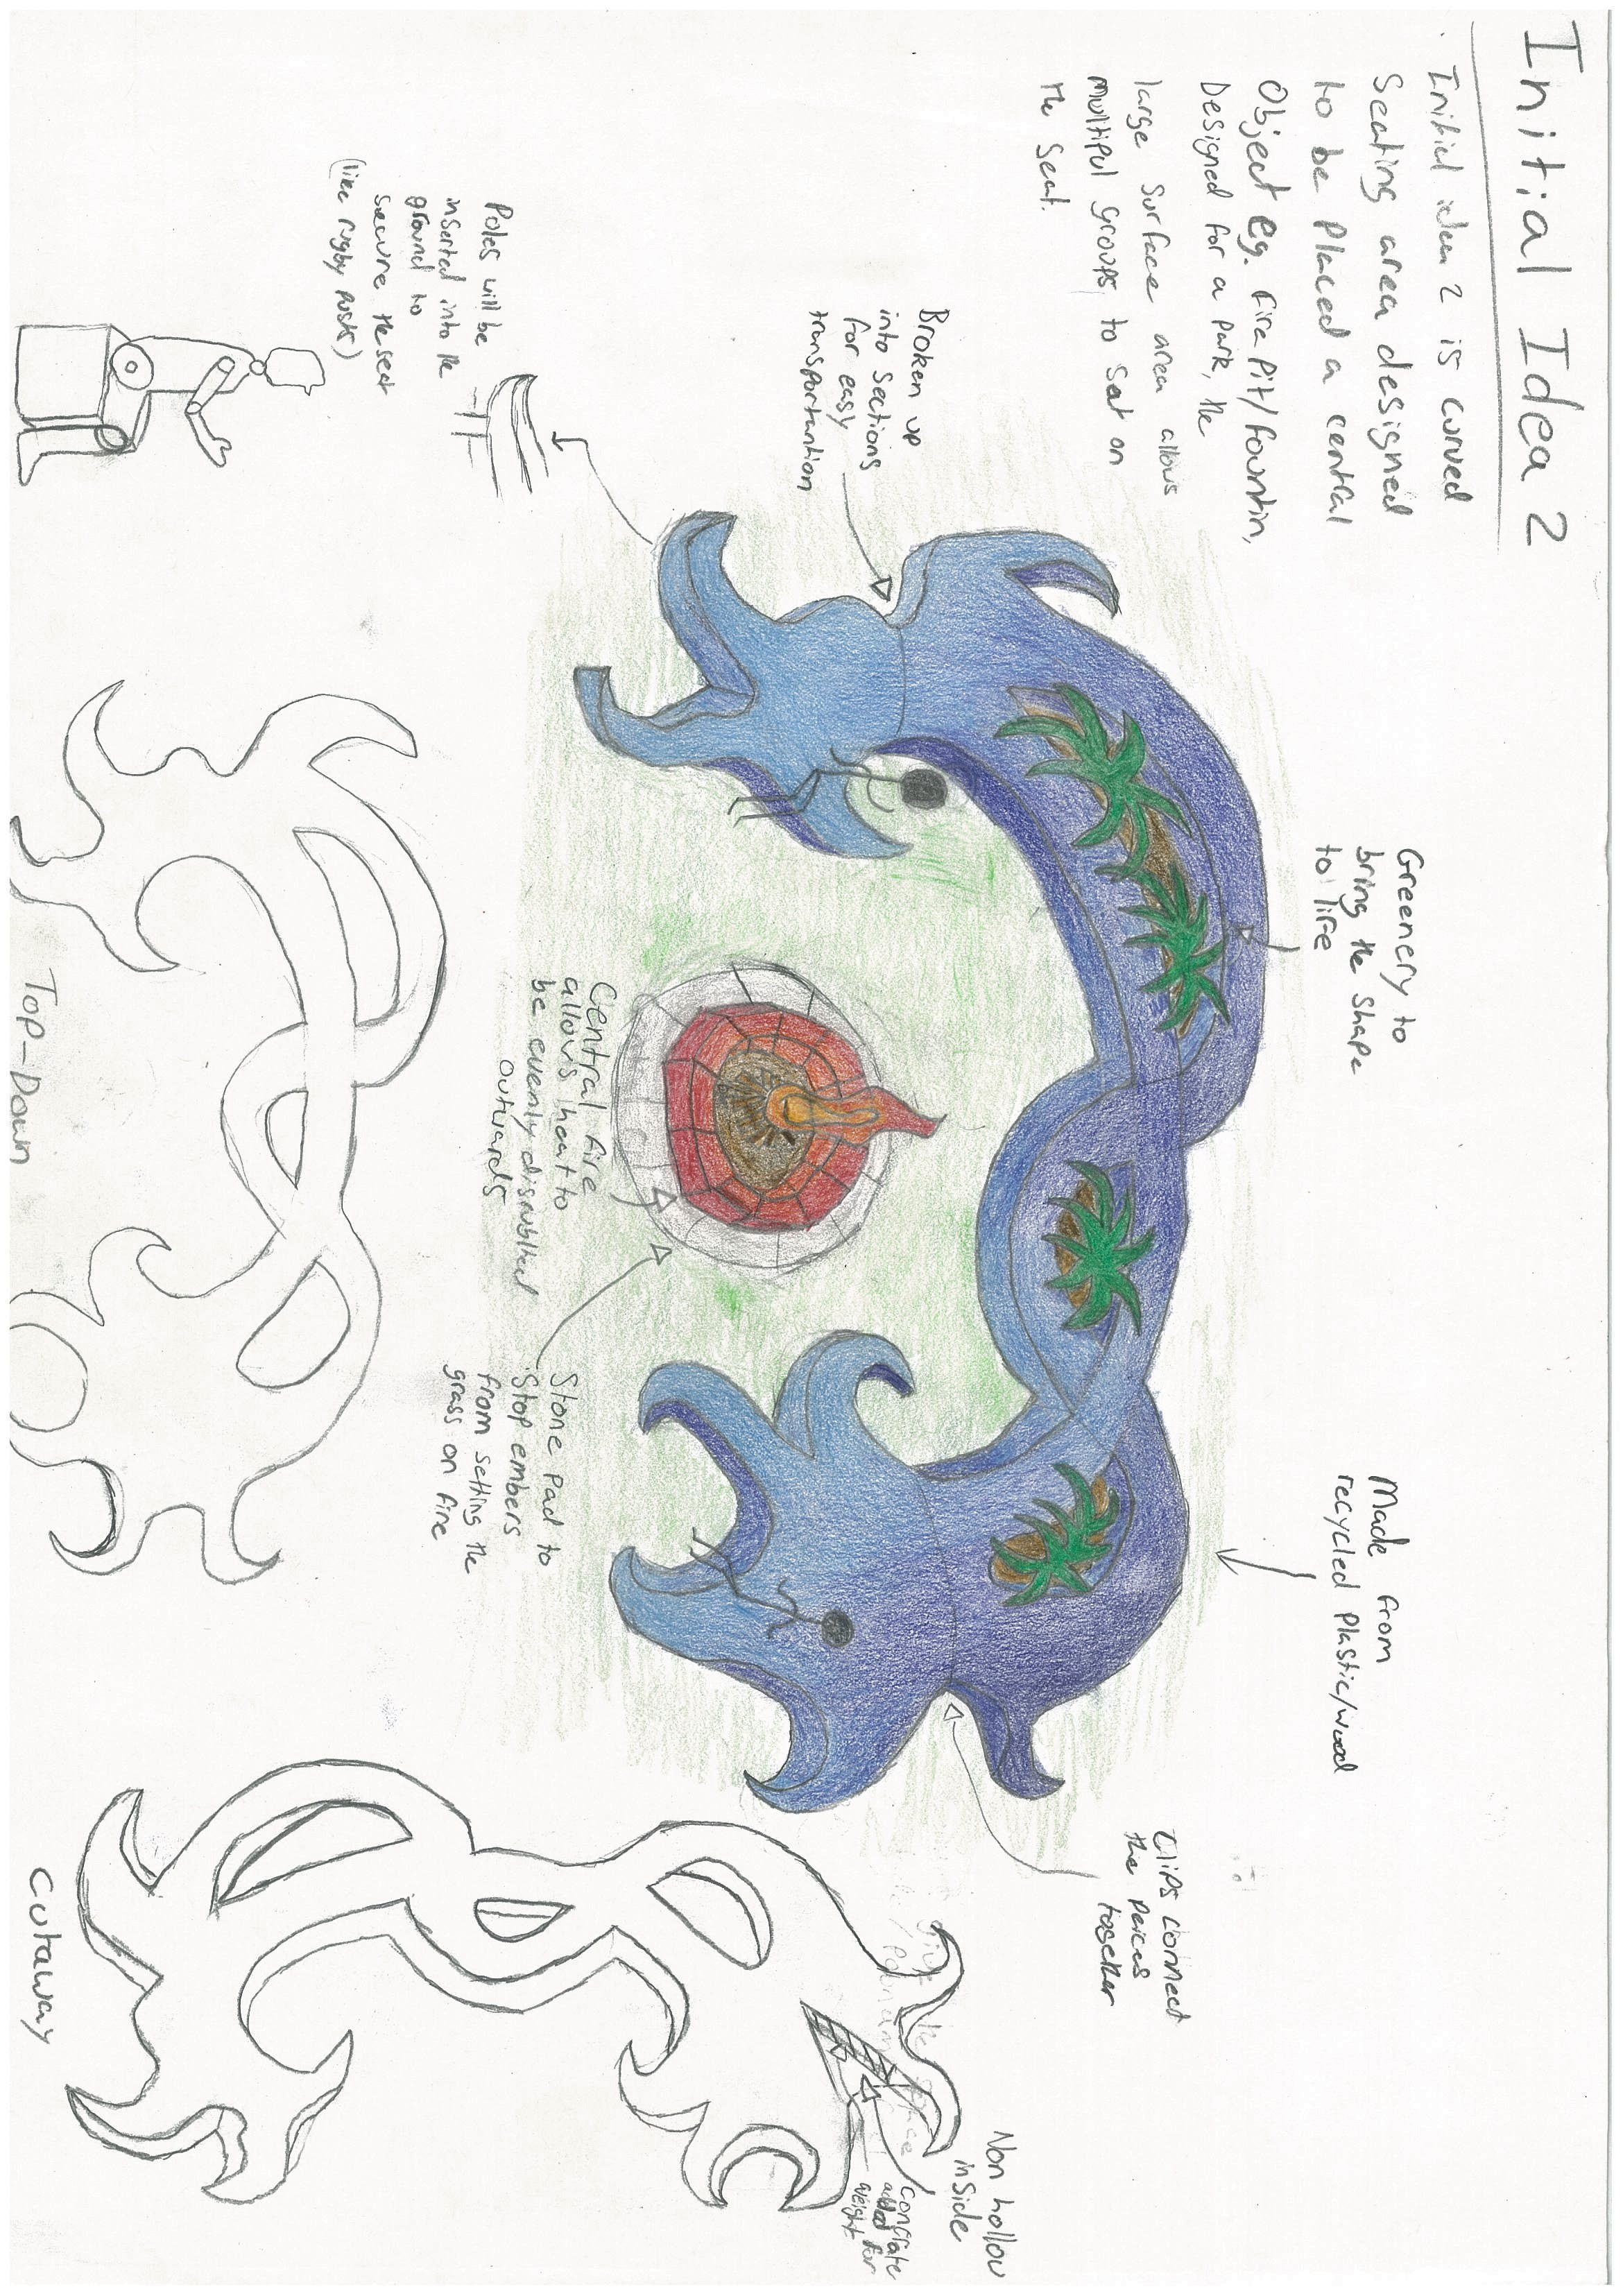 Initial Idea 2
Initial idea 2 is curved
Seating area designed
to be Placed a central
Object eg. fire Pit/fountin,
Designed for a Park, the
large surface area allows
multipul groups to sat on
the seat.
Greenery to
bring the shape
to life
Made from
recycled Plastic/wood
Clips connect
the Peices
together
Non hollow
inside
concrate
added for
weight
Broken up
into sections
for easy
transportantion
Central fire
allows heat to
be evenly disrublted
outwards
Stone Pad to
Stop embers
from setting the
grass on fire
Poles will be
inserted into the
ground to
secure the seat
(like rugby posts)
Top-Down
Cutaway